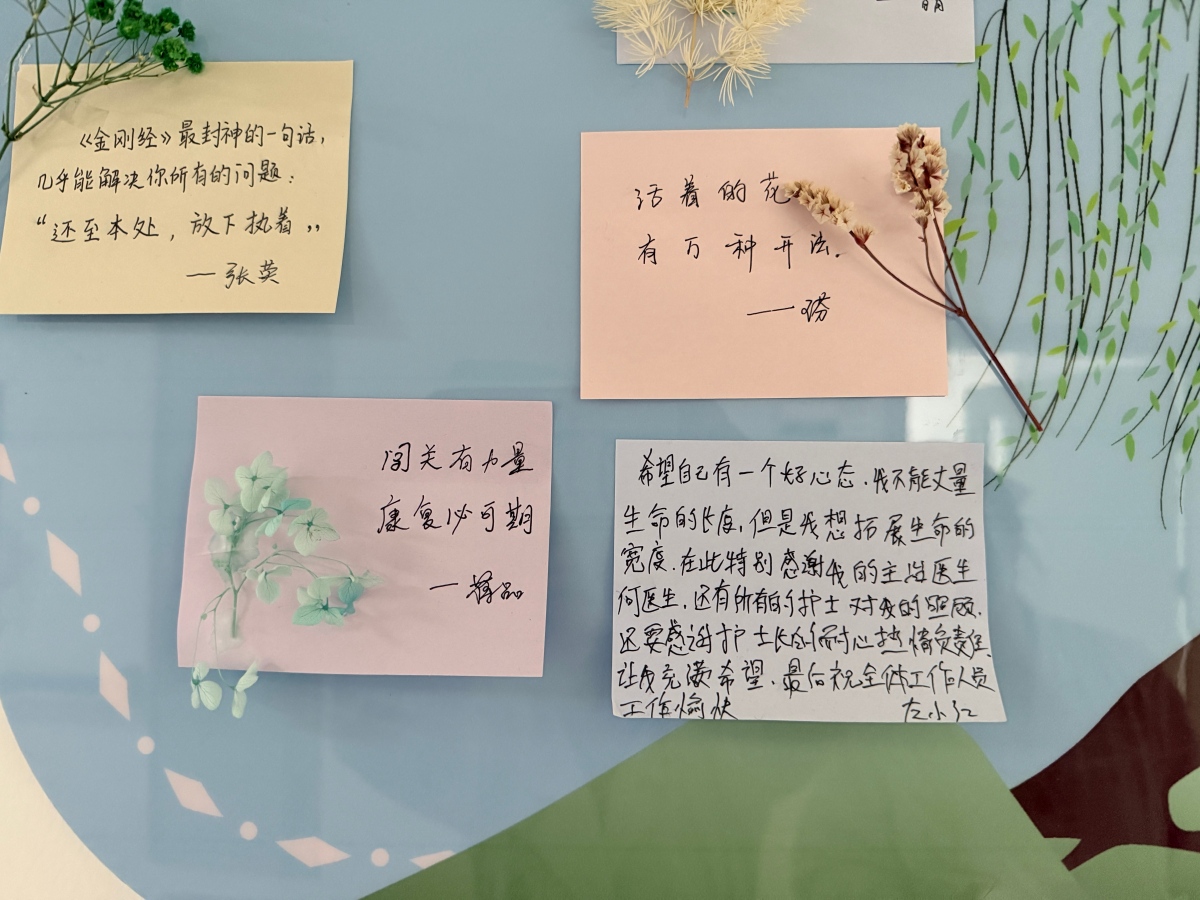 明
《金刚经》最封神的一句话,
几乎能解决你所有的问题:
“还至本处, 放下执着”
一张英
活着的花
有万种开法.
——芬
闯关有力量
康复必可期
一 品
希望自己有一个好心态.我不能丈量
生命的长度,但是我想拓展生命的
宽度.在此特别感谢我的主治医生
何医生,还有所有的护士对我的照顾,
还要感谢护士长的耐心热情负责任
让我充满希望.最后祝全体工作人员
工作愉快 左小红